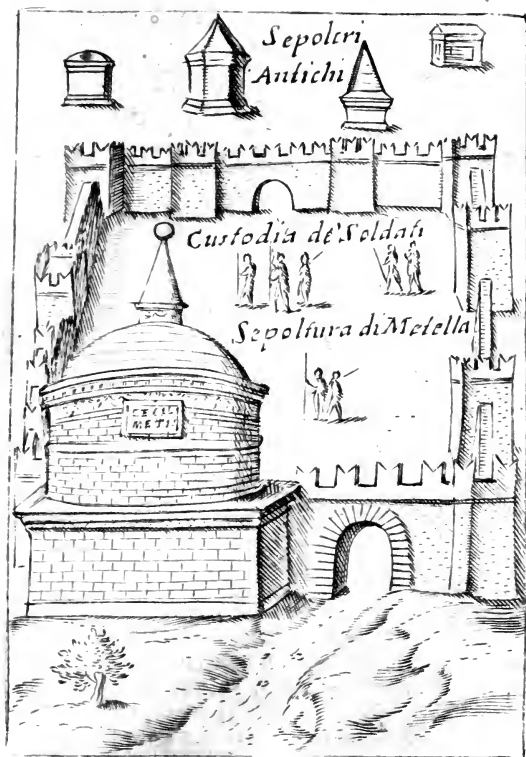 Sepolcri
Antichi
Custodia de' Soldati
Sepoltura di Metella
CECIL
METI